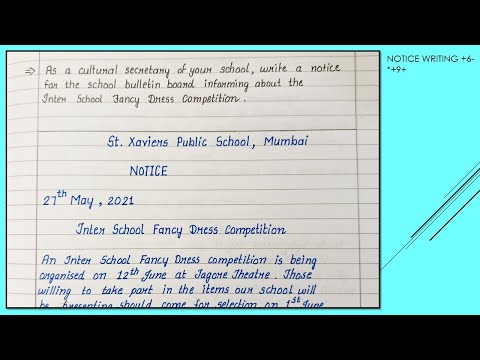 ⇒ As a cultural secretary of your school, write a notice
for the school bulletin board informing about the
Inter School Fancy Dress Competition.
St. Xaviers Public School, Mumbai
NOTICE
27th May, 2021
Inter School Fancy Dress Competition
An Inter School Fancy Dress competition is being
organised on 12th June at Tagore Theatre. Those
willing to take part in the items our school will
be presenting should come for selection on 1st June
NOTICE WRITING +6-
*+9+